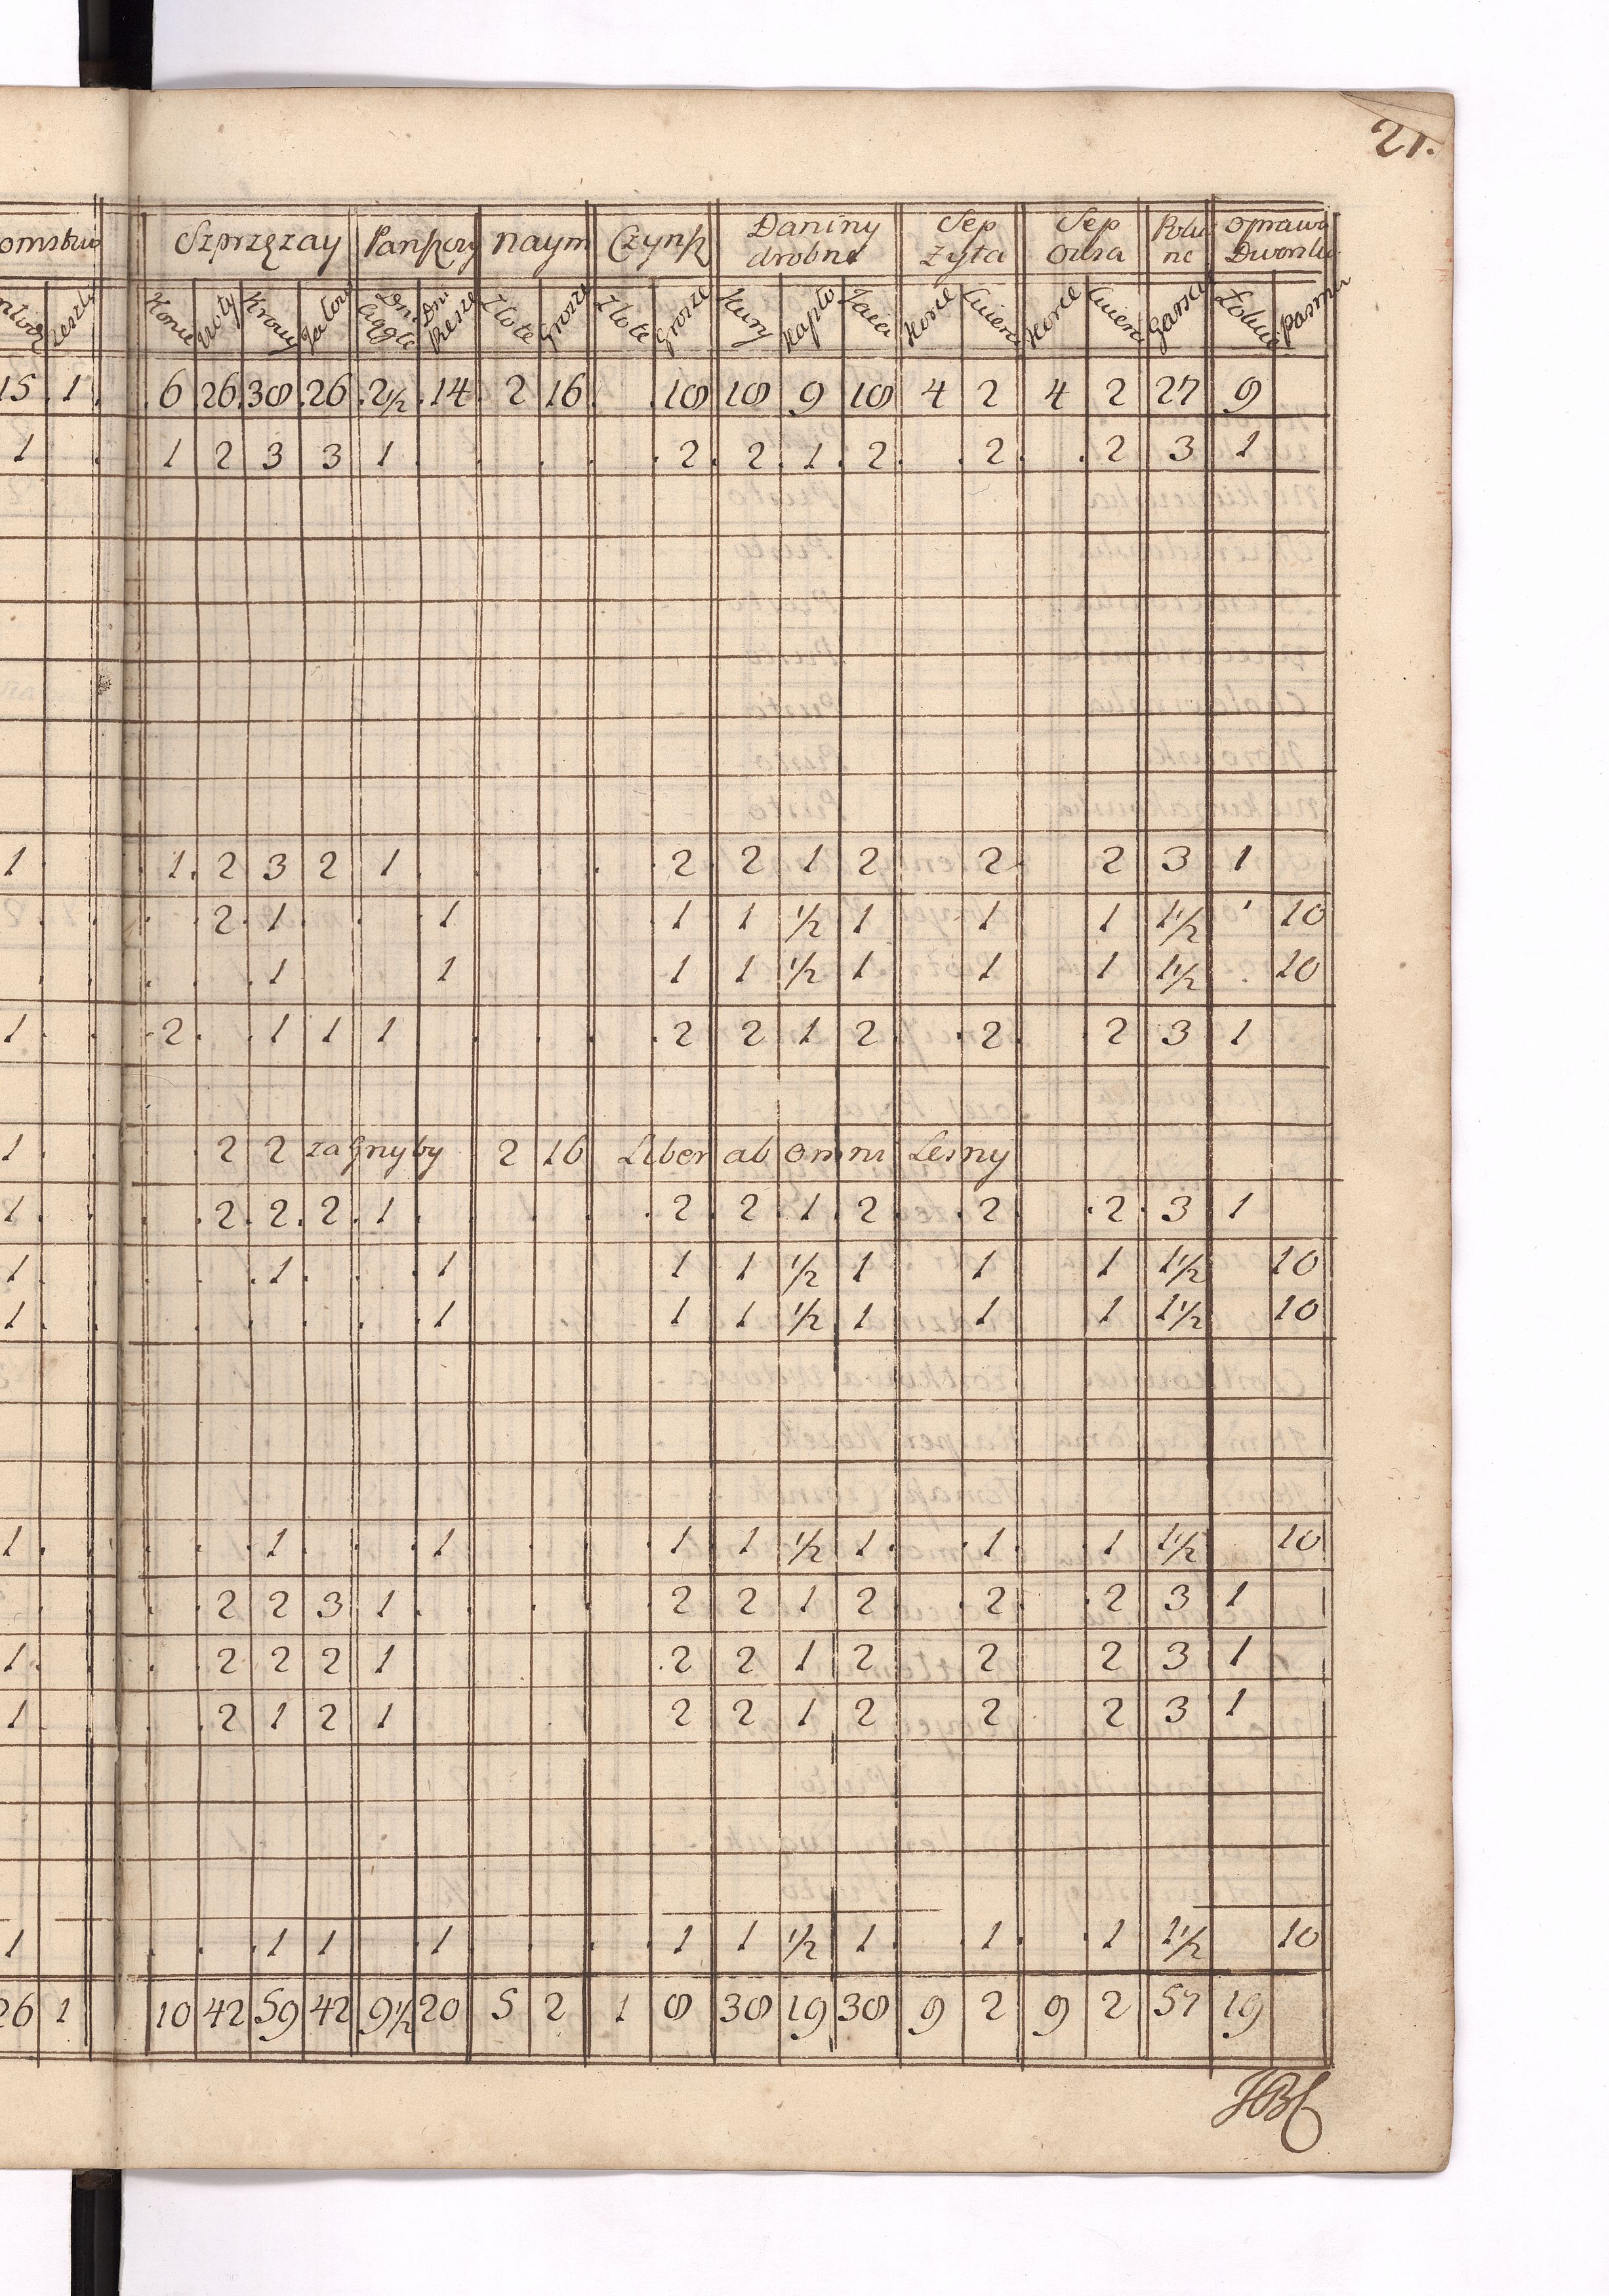 21.
Szprzęzay Pańszczy naym Czynsz Daniny drobne Sep Zyta Sep Owsa Oprawa Dworska
Konie Woły Krowy Dni Ciągłe Dni Piesze Złote Grosze Złote Grosze Kury Kapło Jaica Korce Cwierci Korce Cwierci Garnce Łokcie Pasma
15 1 6 26 38 26 2½ 14 2 16 18 18 9 18 4 2 4 2 27 9
1 1 2 3 3 1 2 2 1 2 2 2 3 1
1 1 2 3 2 1 2 2 1 2 2 2 3 1
2 1 1 1 1 ½ 1 1 1 1½ 10
1 1 1 1 ½ 1 1 1 1½ 10
1 2 1 1 1 2 2 1 2 2 2 3 1
1 2 2 za Grzyby 2 16 Liber ab omni Lesny
1 2 2 2 1 2 2 1 2 2 2 3 1
1 1 1 1 1 ½ 1 1 1 1½ 10
1 1 1 1 ½ 1 1 1 1½ 10
1 1 1 1 1 ½ 1 1 1 1½ 10
2 2 3 1 2 2 1 2 2 2 3 1
1 2 2 2 1 2 2 1 2 2 2 3 1
1 2 1 2 1 2 2 1 2 2 2 3 1
1 1 1 1 1 1 ½ 1 1 1 1½ 10
26 1 10 42 59 42 9½ 20 5 2 1 8 38 19 38 9 2 9 2 57 19